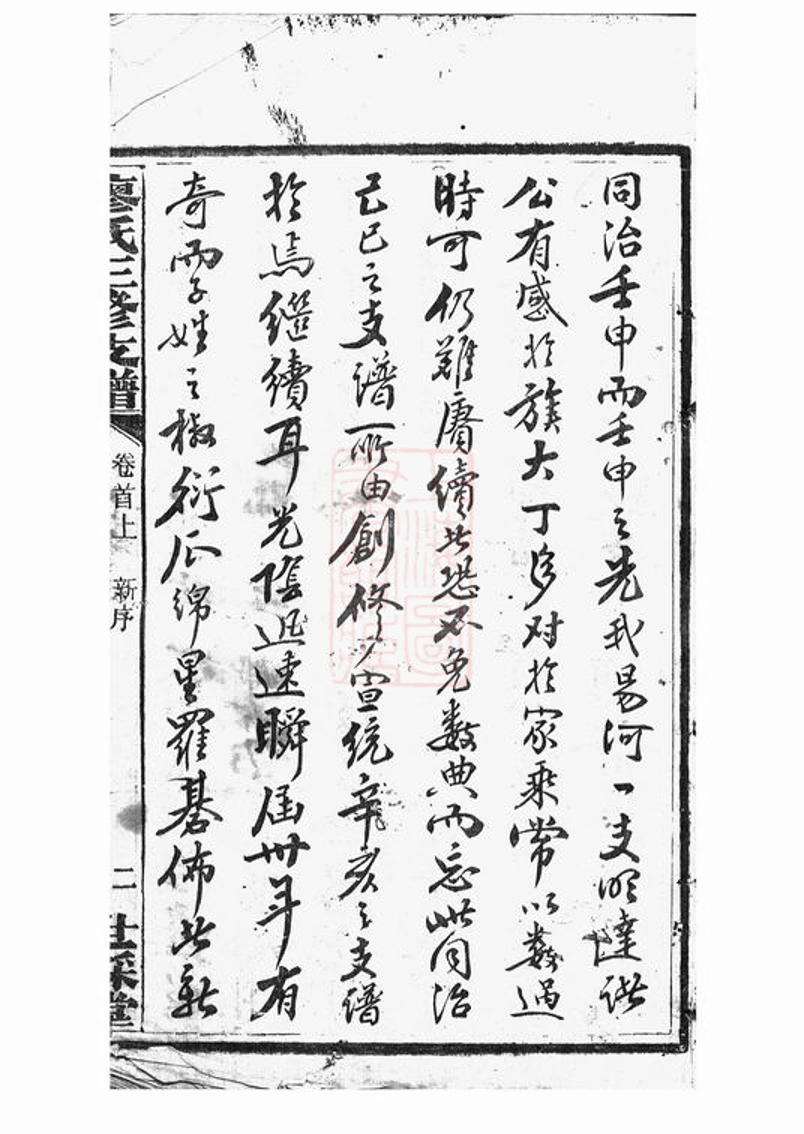 同治壬申而壬申之先我易河一支明達諸
公有感於族大丁多对於家乘常以数過
時可仍難賡續者恐不免数典而忘此同治
己巳之支譜所由創修宣統辛亥之支譜
於焉繼續耳光陰迅速瞬届卅年有
奇而子姓之椒衍瓜綿星羅碁佈者新
廖氏三修支譜
卷首上 新序
二
世綵堂